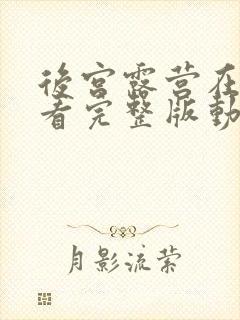 後宮露营在
看完整版動
月影流萦